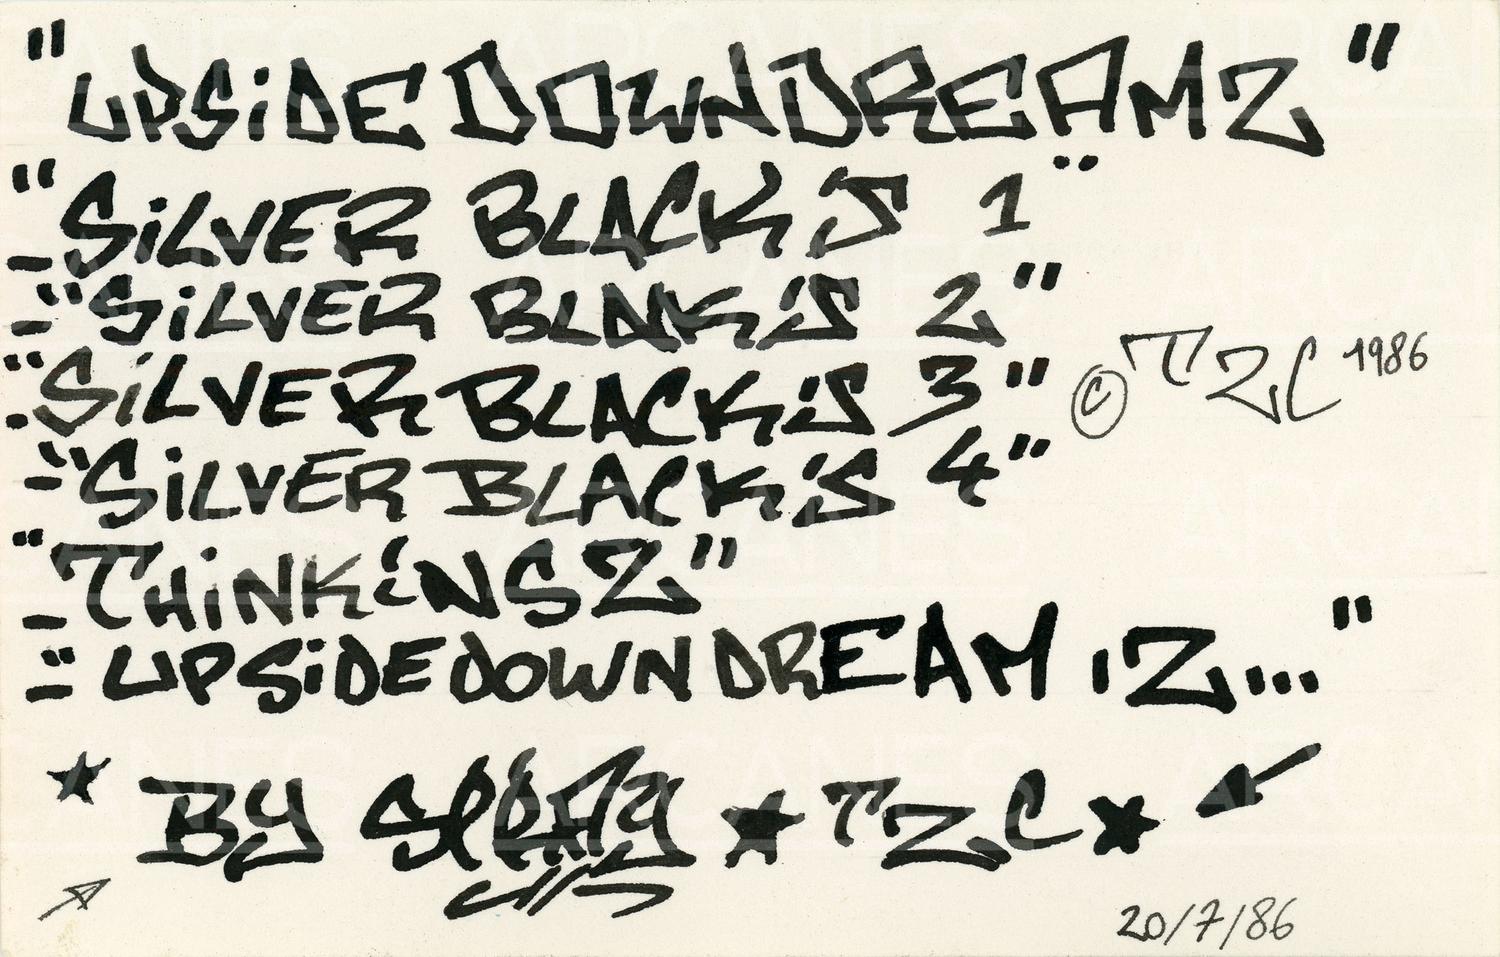 "UPSiDE DOWN DREAMZ"
"SiLVER BLACK'S 1"
-"SiLVER BLAK'S 2"
-"SiLVER BLACK'S 3"
© TZC 1986
-"SiLVER BLACK'S 4"
"THiNK'iNSZ"
-"UPSiDE DOWN DREAM 'Z..."
★ BY SPRAY ★ TZC ★
20/7/86